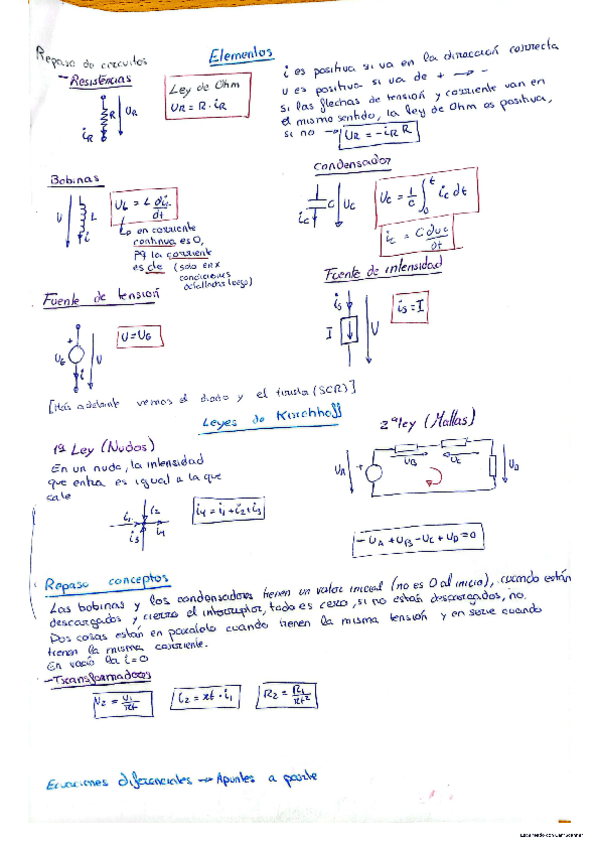 Repaso de circuitos
Elementos
- Resistencias
R
UR
iR
Ley de Ohm
UR = R · iR
i es positiva si va en la dirección correcta
u es positiva si va de + → -
si las flechas de tensión y corriente van en
el mismo sentido, la ley de Ohm es positiva,
si no → UR = -iR R
Bobinas
U
L
i
UL = L diL/dt
↳ en corriente
continua es 0,
pq la corriente
es cte (solo en x
condiciones
detalladas luego)
Condensador
C
UC
iC
UC = 1/C ∫₀ᵗ iC dt
iC = C duC/dt
Fuente de tensión
+
UG
U
i
U = UG
Fuente de intensidad
iS
I
U
iS = I
[Más adelante vemos el diodo y el tiristor (SCR)]
Leyes de Kirchhoff
1ª Ley (Nudos)
En un nudo, la intensidad
que entra es igual a la que
sale
i1
i2
i3
i4
i4 = i1 + i2 + i3
2ª ley (Mallas)
UA
+
UB
UC
UD
-UA + UB - UC + UD = 0
Repaso conceptos
Las bobinas y los condensadores tienen un valor inicial (no es 0 al inicio), cuando están
descargados y cierro el interruptor, todo es cero, si no están descargados, no.
Dos cosas están en paralelo cuando tienen la misma tensión y en serie cuando
tienen la misma corriente.
En vacío la i = 0
- Transformadores
U2 = U1/rt
i2 = rt · i1
R2 = R1/rt²
Ecuaciones diferenciales → Apuntes a parte